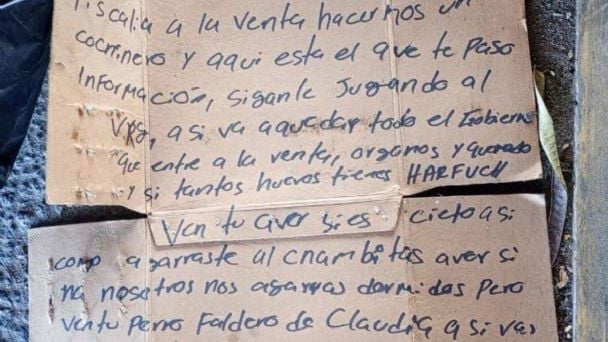 Fiscalia a la venta hacernos un
cochinero y aqui esta el que te Paso
Información, siganle Jugando al
Vrg, a si va aquedar todo el Gobierno
que entre a la venta, organos y
y si tantos huevos tienes HARFUCH
Ven tu aver si es cieto asi
como agarraste al cnambitas aver si
na nosotros nos agarras dormidos Pero
ven tu Perro Faldero de Claudia a si vas